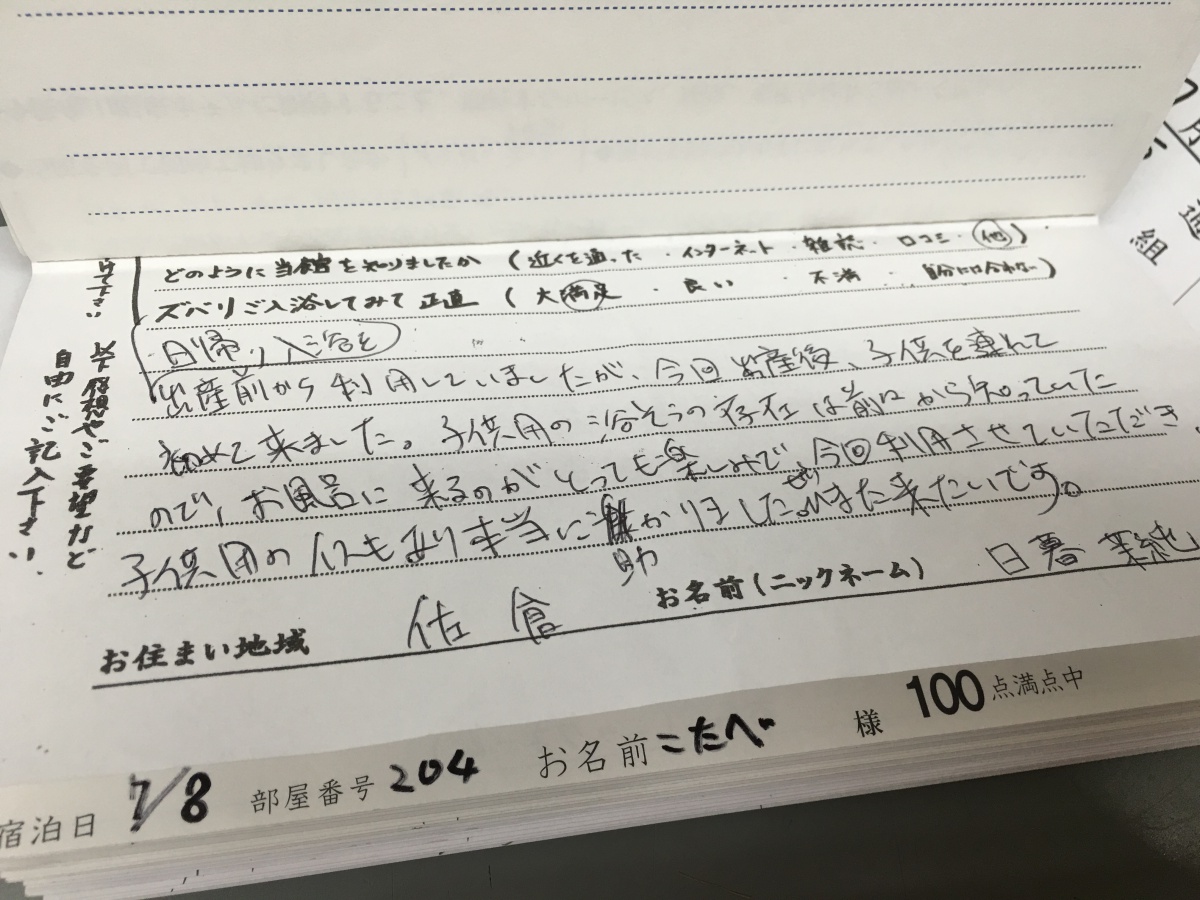 どのように当館を知りましたか（近くを通った ・インターネット ・雑誌 ・口コミ ・他）
ズバリご入浴してみて正直（大満足 ・良い ・不満 ・自分には合わない）
・日帰り入浴を
出産前から利用していましたが、今回出産後、子供を連れて
初めて来ました。子供用の浴そうの存在は前から知っていた
ので、お風呂に来るのがとっても楽しみで、今回利用させていただき、
子供用のイスもあり本当に助かりました。ぜひまた来たいです。
お住まい地域 佐倉 お名前（ニックネーム） 日暮
宿泊日 7/8 部屋番号 204 お名前 こたべ 様 100点満点中
けて下さい
ご感想やご要望など
自由にご記入下さい。
組